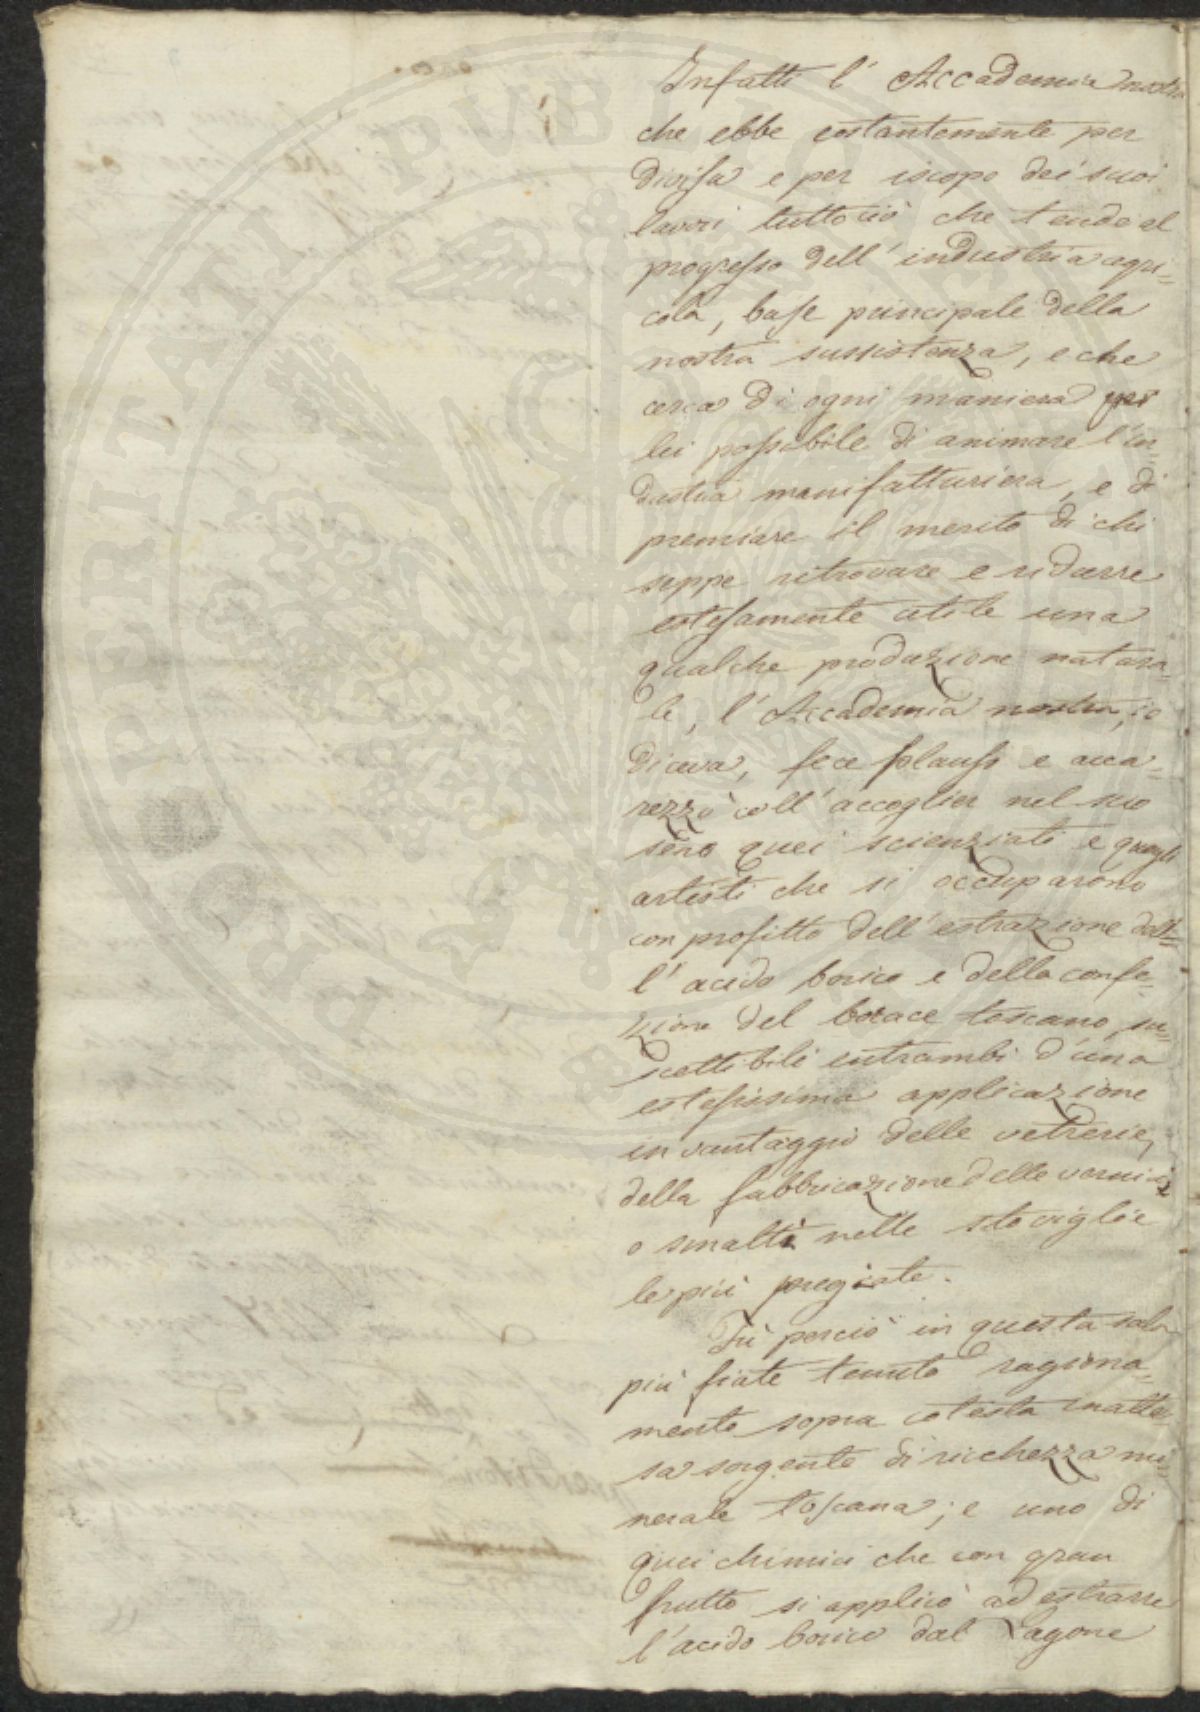 Infatti l'Accademia nostra
che ebbe costantemente per
divisa e per iscopo dei suoi
lavori tuttociò che tende al
progresso dell'industria agri=
cola, base principale della
nostra sussistenza, e che
cerca di ogni maniera per
lei possibile di animare l'in=
dustria manifatturiera, e di
premiare il merito di chi
seppe ritrovare e ridurre
estesamente utile una
qualche produzione natura=
le, l'Accademia nostra, io
diceva, fece plauso e acca=
rezzò coll'accoglier nel suo
seno quei scienziati e quegli
artisti che si occuparono
con profitto dell'estrazione del=
l'acido borico e della confe=
zione del borace toscano, su=
scettibili entrambi d'una
estesissima applicazione
in vantaggio delle vetrerie,
della fabbricazione delle vernici
o smalti nelle stoviglie
le più pregiate.
Fù perciò in questa sala
più fiate tenuto ragiona=
mento sopra cotesta inatte
sa sorgente di ricchezza mi
nerale toscana; e uno di
quei chimici che con gran
frutto si applicò ad estrarre
l'acido borico dal Lagone
PROSPERITATI PVBLICAE